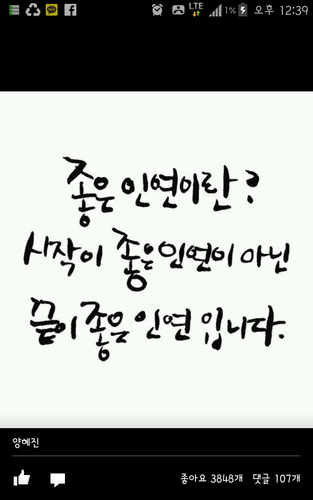 LTE 1% 오후 12:39
좋은 인연이란?
시작이 좋은 인연이 아닌
끝이 좋은 인연 입니다.
양예진
좋아요 3848개 댓글 107개